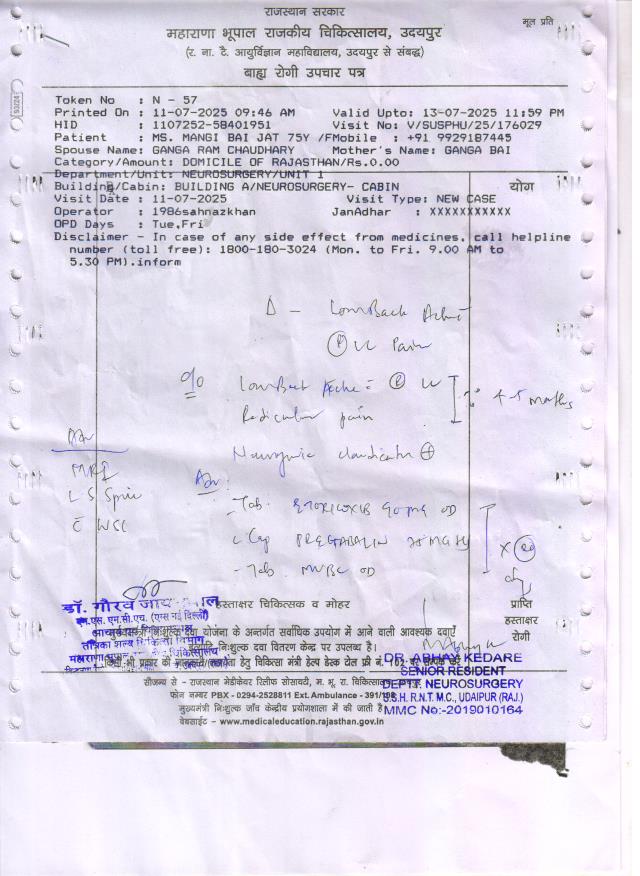 राजस्थान सरकार
मूल प्रति
महाराणा भूपाल राजकीय चिकित्सालय, उदयपुर
(र. ना. टै. आयुर्विज्ञान महाविद्यालय, उदयपुर से संबद्ध)
बाह्य रोगी उपचार पत्र
Token No : N - 57
Printed On : 11-07-2025 09:46 AM Valid Upto: 13-07-2025 11:59 PM
HID : 1107252-58401951 Visit No: V/SUSPHU/25/176029
Patient : MS. MANGI BAI JAT 75Y /FMobile : +91 9929187445
Spouse Name: GANGA RAM CHAUDHARY Mother's Name: GANGA BAI
Category/Amount: DOMICILE OF RAJASTHAN/Rs.0.00
Department/Unit: NEUROSURGERY/UNIT 1
Building/Cabin: BUILDING A/NEUROSURGERY- CABIN
योग
Visit Date : 11-07-2025 Visit Type: NEW CASE
Operator : 1986sahnazkhan JanAdhar : XXXXXXXXXXX
OPD Days : Tue,Fri
Disclaimer - In case of any side effect from medicines, call helpline
number (toll free): 1800-180-3024 (Mon. to Fri. 9.00 AM to
5.30 PM).inform
Δ - Low Back Ache
(R) LL Pain
c/o Low Back Ache (R) LL
Radicular pain
4-5 months
Neurogenic claudication ⊕
Adv
MRI
L S Spine
c̄ WSS
Adv:
- Tab. ETORICOXIB 90 mg OD
- Cap PREGABALIN 75 mg
- Tab. MVBC OD
हस्ताक्षर चिकित्सक व मोहर
प्राप्ति
हस्ताक्षर
रोगी
डॉ. गौरव
मुख्यमंत्री निःशुल्क दवा योजना के अन्तर्गत सर्वाधिक उपयोग में आने वाली आवश्यक दवाएँ
निःशुल्क दवा वितरण केन्द्र पर उपलब्ध है।
DR. ABHAY KEDARE
SENIOR RESIDENT
DEPTT. NEUROSURGERY
S.S.H. R.N.T. M.C., UDAIPUR (RAJ.)
MMC No:-2019010164
सौजन्य से - राजस्थान मेडीकेयर रिलीफ सोसायटी, म. भू. रा. चिकित्सालय
फोन नम्बर PBX - 0294-2528811 Ext. Ambulance - 391/
मुख्यमंत्री निःशुल्क जाँच केन्द्रीय प्रयोगशाला में की जाती है
वेबसाईट - www.medicaleducation.rajasthan.gov.in